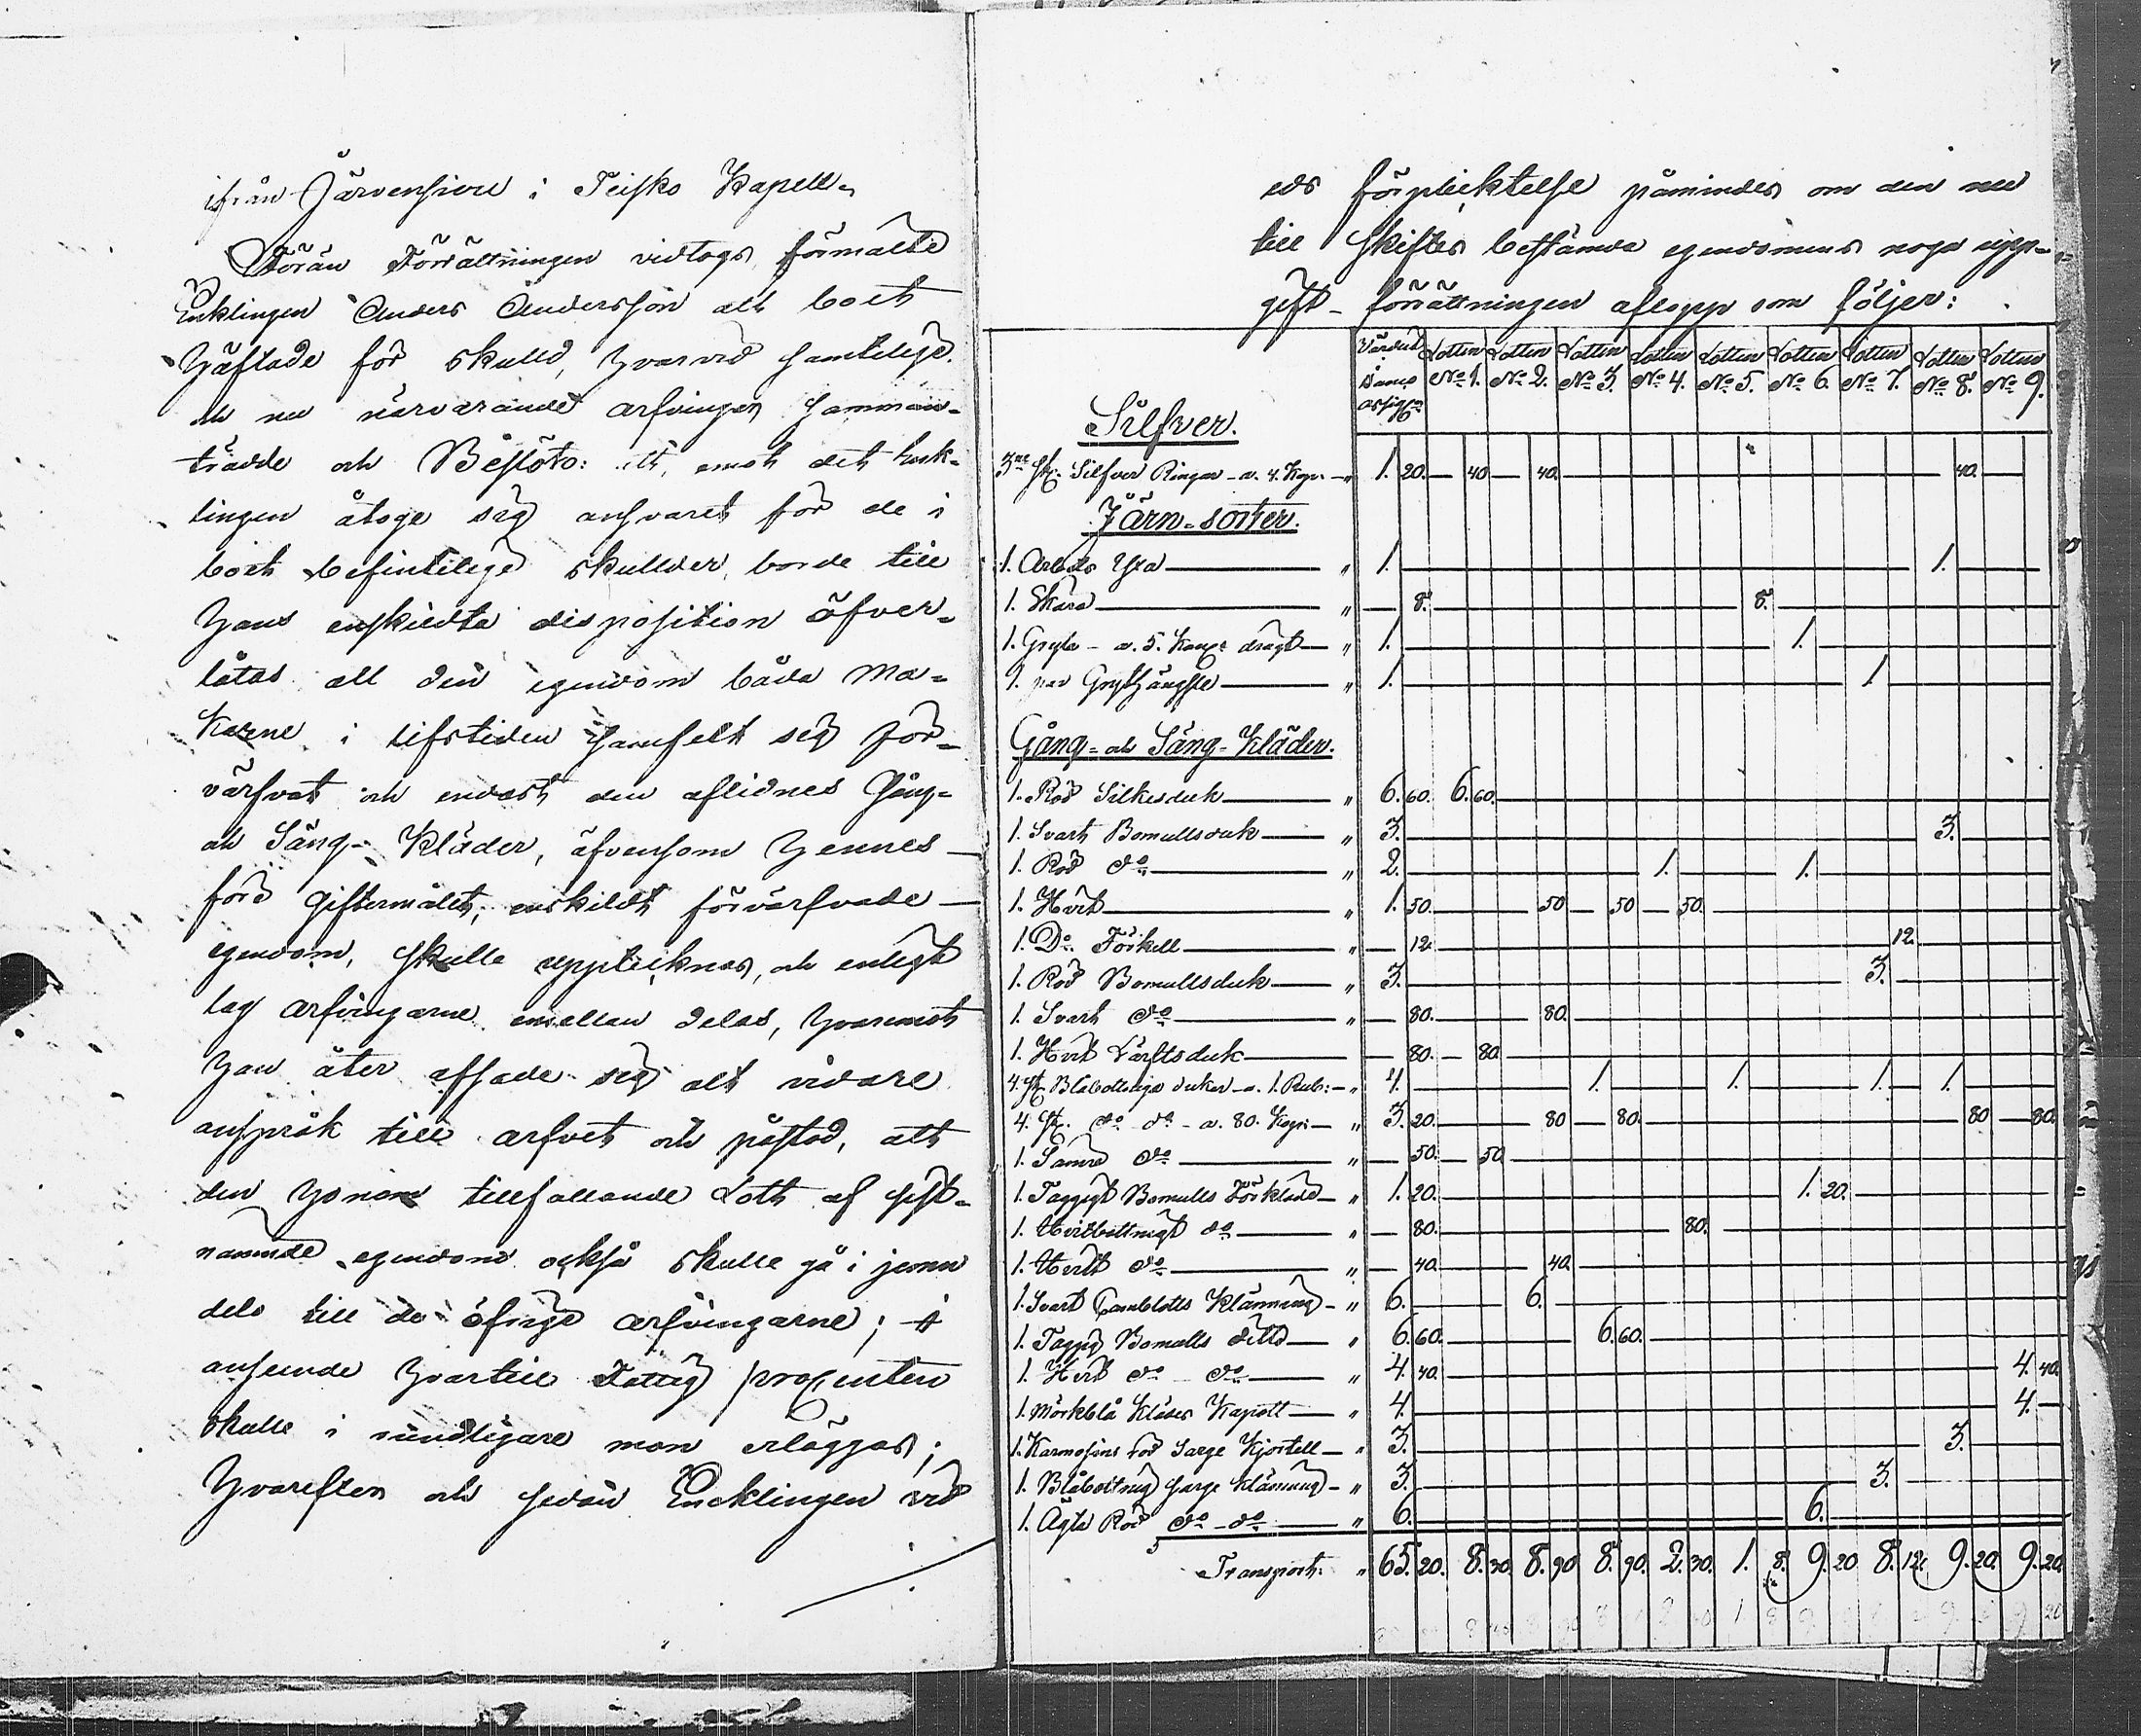 ifrån Järvensivu i Teisko Kapell.
Förän Förrättningen vidtogs, förmälte
Enklingen Anders Andersson att boet
häftade för skuld, hvarvid samtelige
de nu närvarande arfvingar samman-
trädde och Beslöto: att, emot det Enk-
lingen åtoge sig ansvaret för de i
boet befintelige skullder, borde till
hans enskiedta disposition öfver-
låtas all den egendom båda Ma-
karne i lifstiden samfelt sig för-
värfvat och endast den aflidnes Gång-
och Säng-Kläder, äfvensom hennes
före giftermålet, enskildt förvärfvade
egendom, skulle uppteknas, och enligt
lag arfvingarne emellan delas, hvaremot
han åter afsade sig alt vidare
anspråk till arfvet och påstod, att
den honom tillfallande Lott af sist-
nämnde egendom också skulle gå i jemn
dels till de öfrige arfvingarne; i
anseende hvartill Fattig procenten
skulle i mindligare mon erläggas;
hvarefter och sedan Encklingen vid
eds förpliektelse påmindes om den nu
till skiftes bestämda egendomens noga upp-
gift - förrättningen aflopp som följer:
Värdet i Samf assigg:r Lotten No 1. Lotten No 2. Lotten No 3. Lotten No 4. Lotten No 5. Lotten No 6. Lotten No 7. Lotten No 8. Lotten No 9.
Silfver.
3ne st. Silfver Ringar - a. 4. Kop: - " 1. 20. 40 40. 40.
Järn-sorter.
1. Arbets Yxa " 1. 1.
1. Skära " 8. 8.
1. Gryta - a. 5. Kanr: drägt " 1. 1.
1. par Grythängsle " 1. 1
Gång- och Säng-Kläder.
1. Röd Silkesduk " 6. 60. 6. 60.
1. Svart Bomullsduk " 3. 3.
1. Röd do " 2. 1. 1.
1. Hvit " 1. 50. 50 50 50.
1. Do Förkell " 12. 12.
1. Röd Bomullsduk " 3. 3.
1. Svart do " 80. 80.
1. Hvit Lärftsduk 80. 80.
4. st. Blåbottniga dukar - a. 1. Rub: - " 4. 1. 1. 1. 1.
4. st. do do - a. 80. Kop: " 3. 20. 80 80. 80 80.
1. Sämre do " 50. 50
1. Taggigt Bomulls Förkläde " 1. 20. 1. 20.
1. Hvitbottnigt do " 80. 80.
1. Hvitt do " 40. 40.
1. Svart Camblotts Klänning - " 6. 6.
1. Taggig Bomulls ditto " 6. 60. 6. 60.
1. Hvit do - do " 4. 40. 4. 40.
1. Mörkblå Klädes Kapott " 4. 4.
1. Karmosins röd Sarge Kjortell " 3. 3.
1. Blåbottnig Sarge Klänning - " 3. 3.
1. Ägta Röd do - do " 6. 6.
Transport. " 65. 20. 8. 30. 8. 90 8. 90. 2. 30. 1. 8. 9. 20 8. 12. 9. 20. 9. 20.